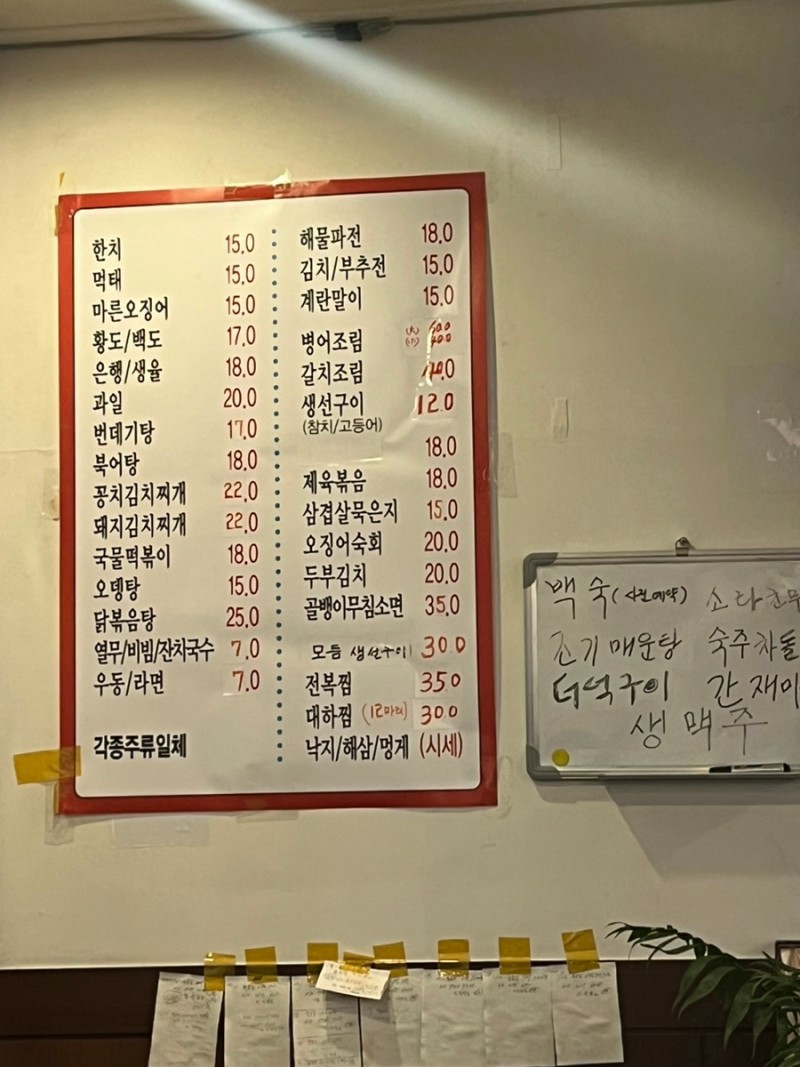 한치 15.0
먹태 15.0
마른오징어 15.0
황도/백도 17.0
은행/생율 18.0
과일 20.0
번데기탕 17.0
북어탕 18.0
꽁치김치찌개 22.0
돼지김치찌개 22.0
국물떡볶이 18.0
오뎅탕 15.0
닭볶음탕 25.0
열무/비빔/잔치국수 7.0
우동/라면 7.0
각종주류일체
해물파전 18.0
김치/부추전 15.0
계란말이 15.0
병어조림
갈치조림
생선구이 12.0
(참치/고등어)
18.0
제육볶음 18.0
삼겹살묵은지 15.0
오징어숙회 20.0
두부김치 20.0
골뱅이무침소면 35.0
모듬 생선구이 30.0
전복찜 35.0
대하찜 (12마리) 30.0
낙지/해삼/멍게 (시세)
백숙 (사전예약)
조기매운탕 숙주차돌
더덕구이 간재미
생맥주